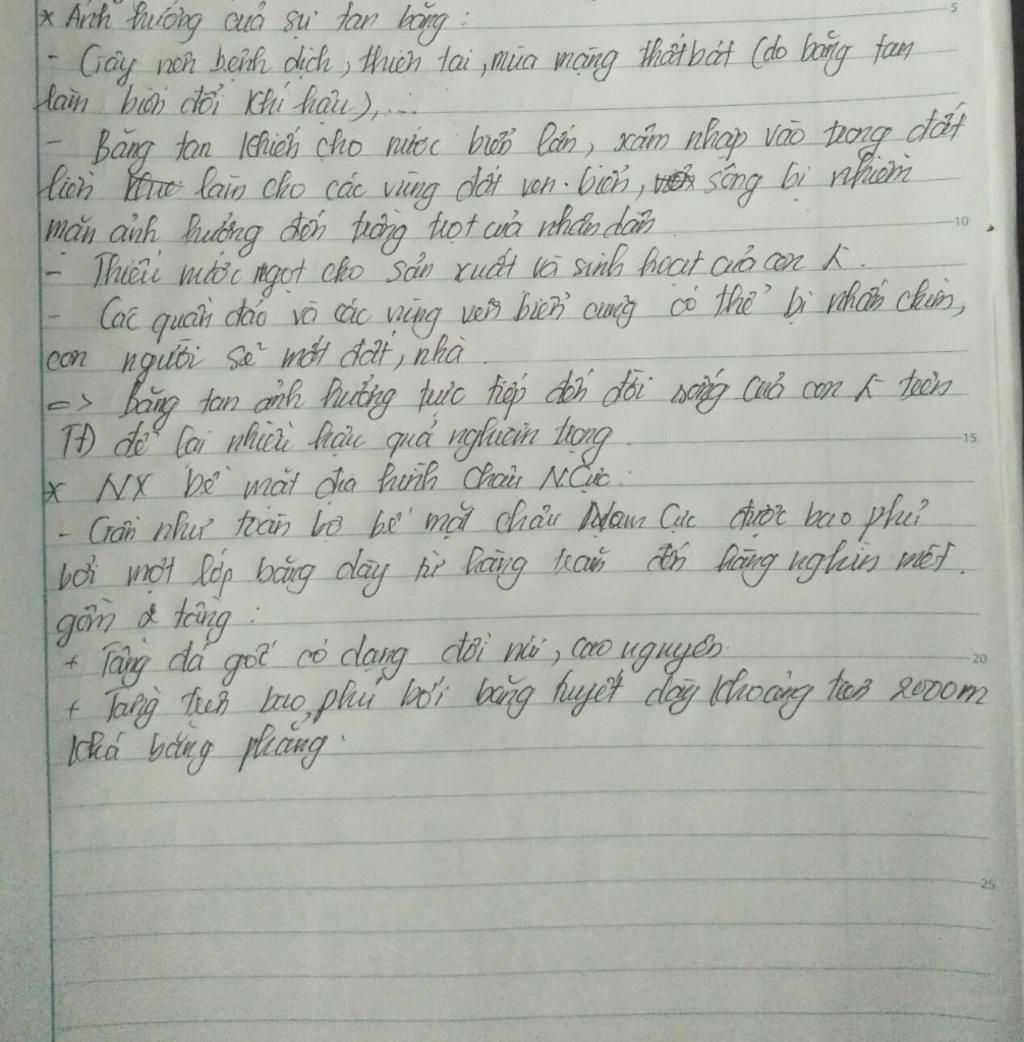 * Ảnh hưởng của sự tan băng :
- Gây nên bệnh dịch, thiên tai, mùa màng thất bát (do băng tan
làm biến đổi khí hậu),...
- Băng tan khiến cho nước biển lấn, xâm nhập vào trong đất
liền làm cho các vùng đất ven biển, sông bị nhiễm
mặn ảnh hưởng đến trồng trọt của nhân dân
- Thiếu nước ngọt cho sản xuất và sinh hoạt của con
- Các quần đảo và các vùng ven biển cũng có thể bị nhấn chìm,
con người sẽ mất đất, nhà
=> Băng tan ảnh hưởng trực tiếp đến đời sống của con trên
TĐ để lại nhiều hậu quả nghiêm trọng
* NX bề mặt địa hình Châu N.Cực :
- Gần như toàn bộ bề mặt châu Nam Cực được bao phủ
bởi một lớp băng dày từ hàng trăm đến hàng nghìn mét.
gồm 2 tầng :
+ Tầng đá gốc có dạng đồi núi, cao nguyên.
+ Tầng trên bao phủ bởi băng tuyết dày khoảng trên 2000m
khá bằng phẳng.
5
10
15
20
25